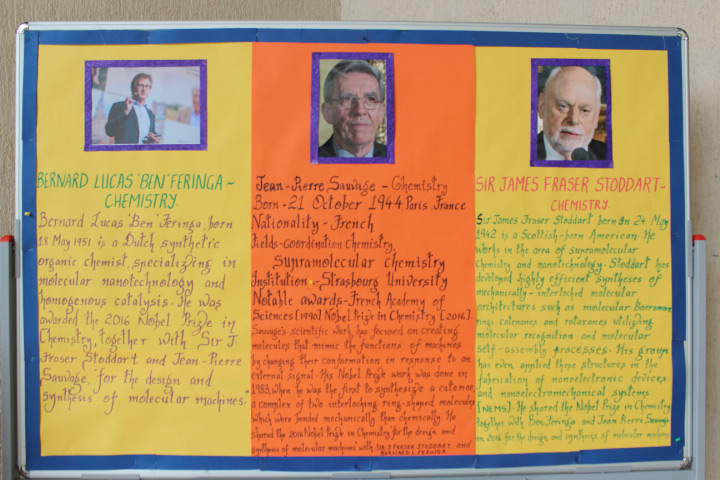 BERNARD LUCAS 'BEN' FERINGA ~
CHEMISTRY
Bernard Lucas 'Ben' Feringa, born
18 May 1951 is a Dutch synthetic
organic chemist, specializing in
molecular nanotechnology and
homogenous catalysis. He was
awarded the 2016 Nobel Prize in
Chemistry, together with Sir J.
Fraser Stoddart and Jean-Pierre
Sauvage, for the design and
synthesis of molecular machines.
Jean-Pierre Sauvage - Chemistry
Born - 21 October 1944 Paris, France
Nationality - French
Fields - Coordination Chemistry,
Supramolecular Chemistry
Institution - Strasbourg University
Notable awards - French Academy of
Sciences [1990] Nobel Prize in Chemistry [2016]
Sauvage's scientific work has focused on creating
molecules that mimic the functions of machines
by changing their conformation in response to an
external signal. His Nobel Prize work was done in
1983, when he was the first to synthesize a catenane,
a complex of two interlocking ring-shaped molecules
which were bonded mechanically than chemically. He
shared the 2016 Nobel Prize in Chemistry for the design and
synthesis of molecular machines with SIR J FRASER STODDART and
BERNARD L FERINGA
SIR JAMES FRASER STODDART -
CHEMISTRY
Sir James Fraser Stoddart born on 24 May
1942 is a Scottish-born American. He
works in the area of supramolecular
Chemistry and nanotechnology. Stoddart has
developed highly efficient syntheses of
mechanically - interlocked molecular
architectures such as molecular Borromean
rings, catenanes and rotaxanes utilizing
molecular recognition and molecular
self-assembly processes. His group
has even applied these structures in the
fabrication of nanoelectronic devices
and nanoelectromechanical systems
[NEMS]. He shared the Nobel Prize in Chemistry
together with Ben Feringa and Jean Pierre Sauvage
in 2016 for the design and synthesis of molecular machines